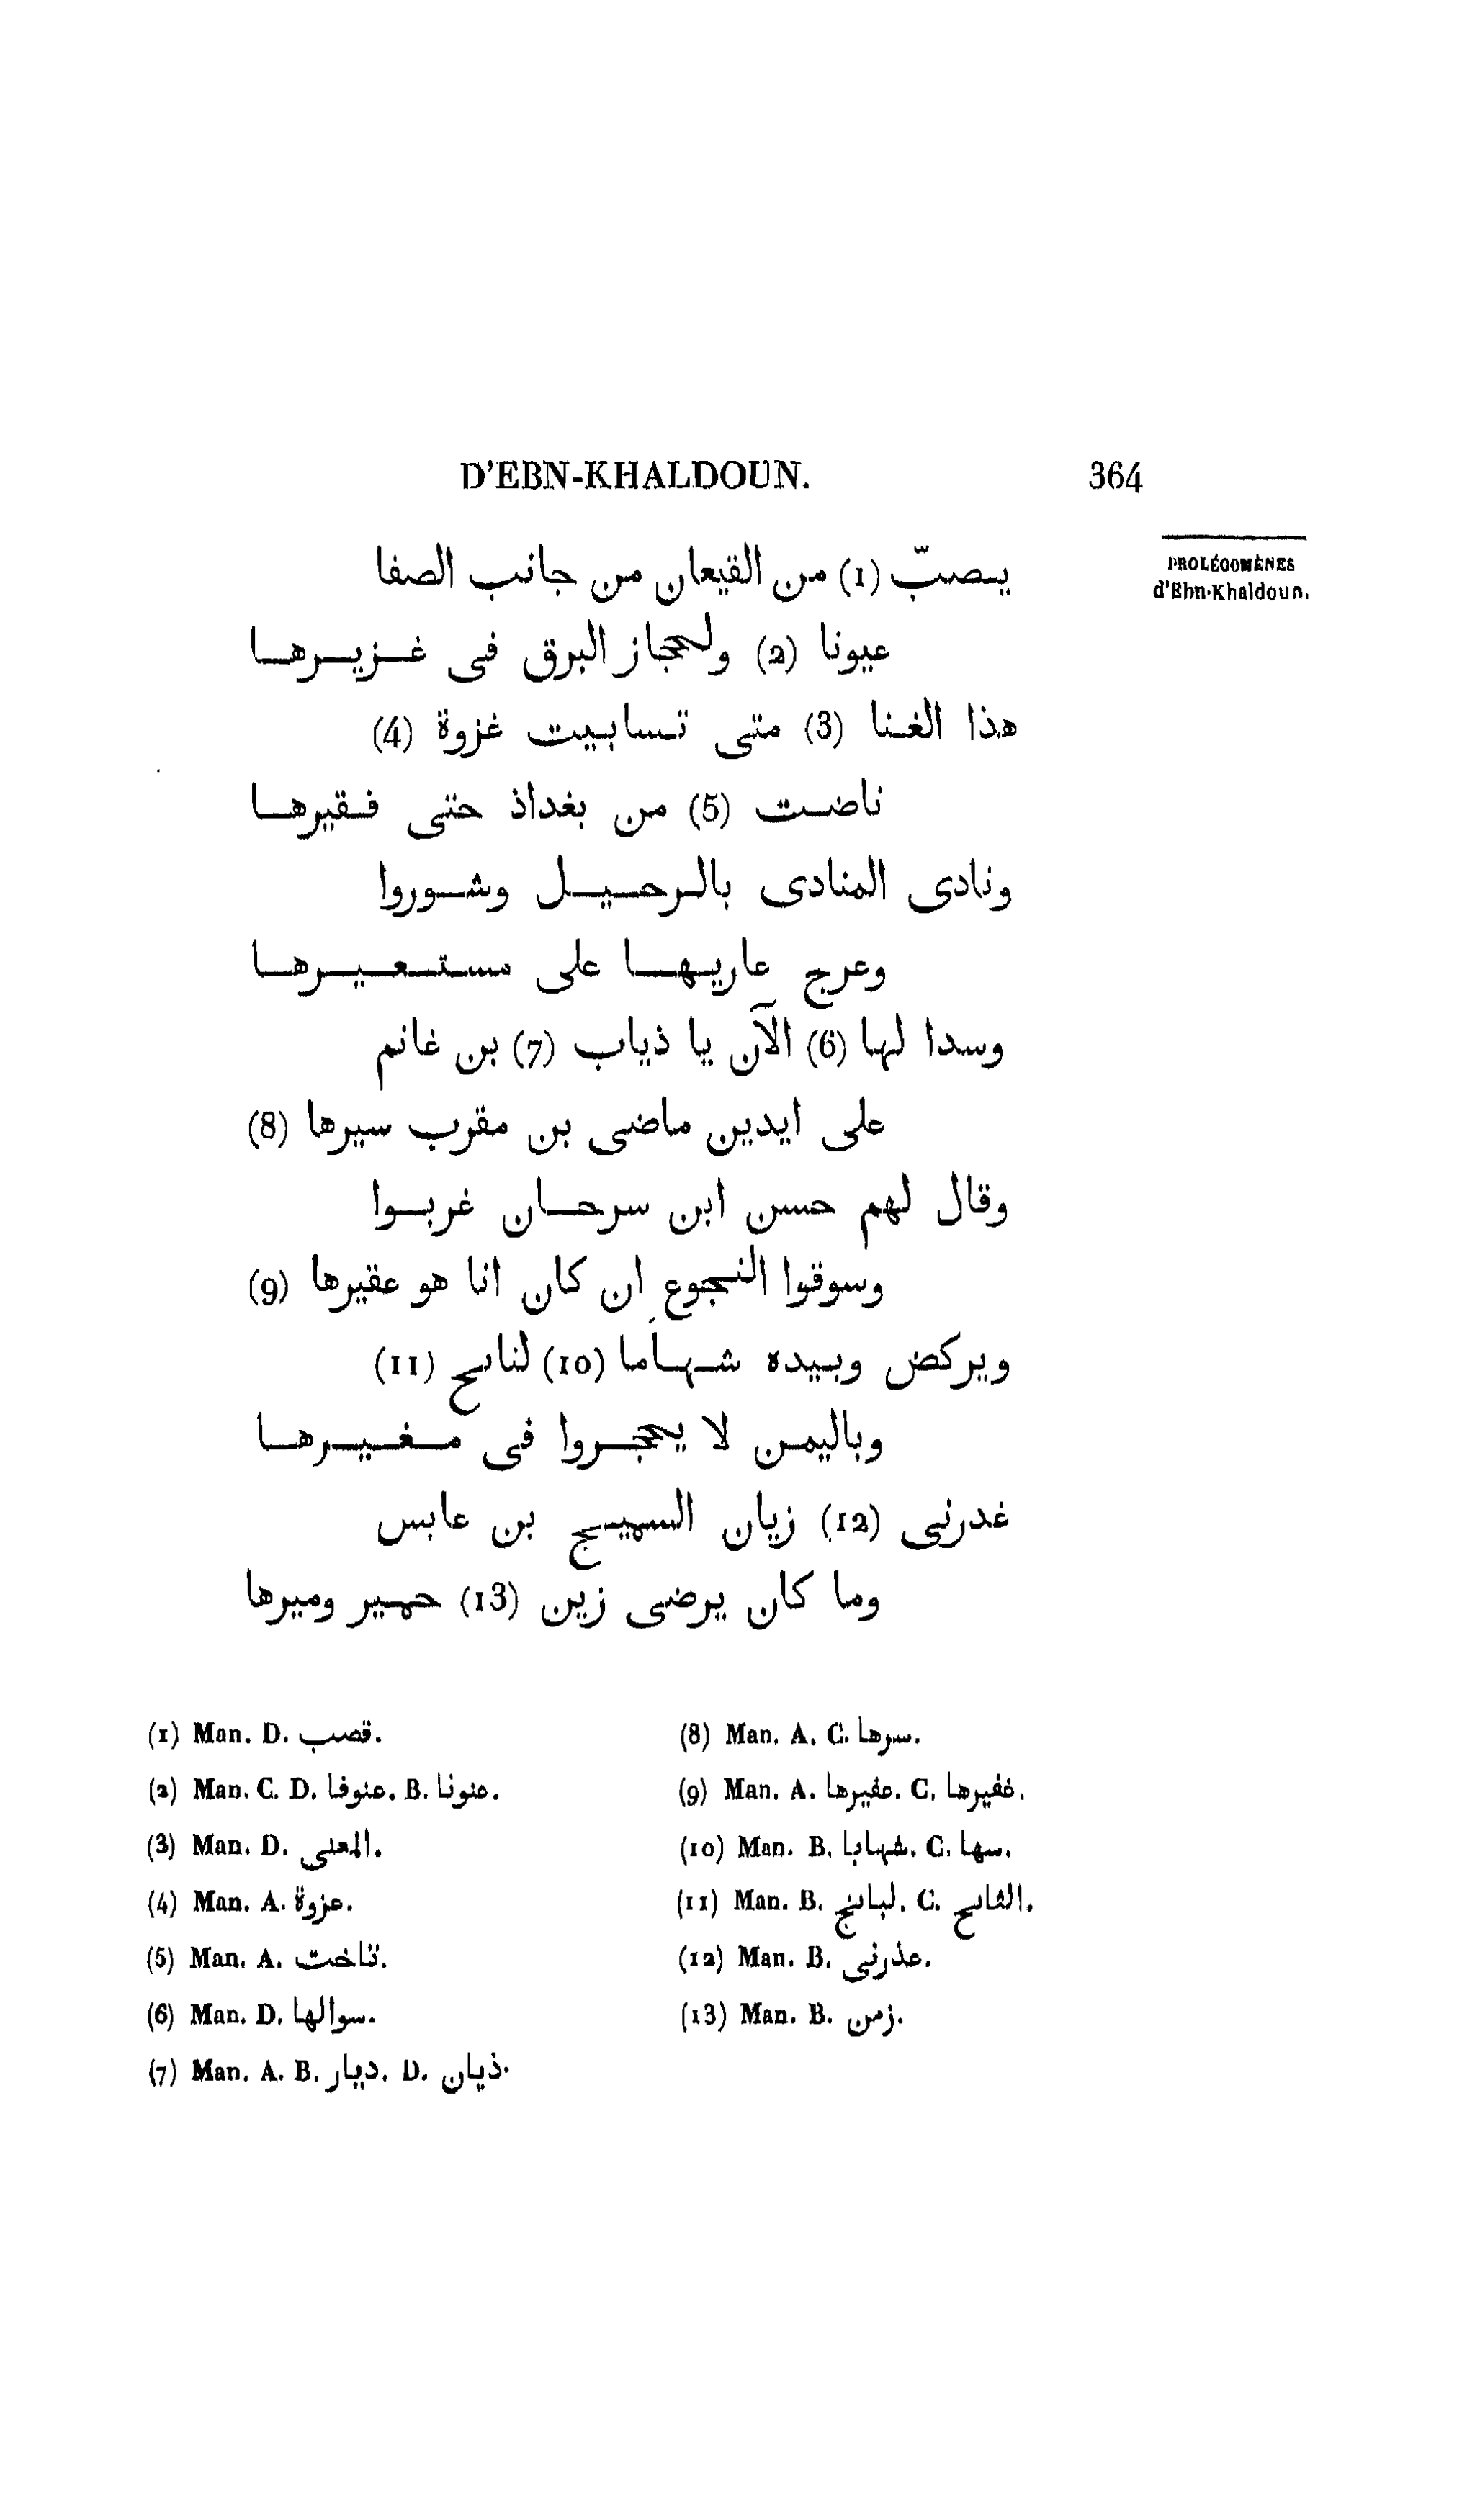 D'EBN-KHALDOUN. 364
PROLÉGOMÈNES
d'Ebn-Khaldoun.
يصبّ (1) من القيعان من جانب الصفا
عيونا (2) ولحجاز البرق فى غزيرها
هذا الغنا (3) متى تسابيت غزوة (4)
ناضت (5) من بغداذ حتى فقيرها
ونادى المنادى بالرحيل وشوروا
وعرج عاريها على مستعيرها
وسدا لها (6) الآن يا ذياب (7) بن غانم
على ايدين ماضى بن مقرب سيرها (8)
وقال لهم حسن ابن سرحان غربوا
وسوقوا النجوع ان كان انا هو عقيرها (9)
ويركض وبيده شهاما (10) لناىح (11)
وباليمن لا يحجروا فى مغيرها
غدرنى (12) زيان السميح بن عابس
وما كان يرضى زين (13) حمير وميرها
(1) Man. D. قصب.
(2) Man. C. D. عنوفا. B. عنونا.
(3) Man. D. المعنى.
(4) Man. A. عزوة.
(5) Man. A. تاخت.
(6) Man. D. سوالها.
(7) Man. A. B. ديار. D. ذيان.
(8) Man. A. C. سرها.
(9) Man. A. عفيرها. C. غفيرها.
(10) Man. B. شهابا. C. سها.
(11) Man. B. لبانج. C. الثاىح.
(12) Man. B. عذرنى.
(13) Man. B. زمن.